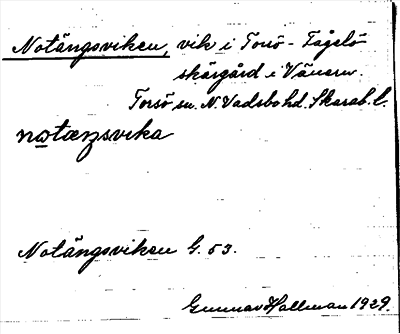 Notängsviken, vik i Torsö - Fågelö
skärgård i Vänern.
Torsö sn. N. Vadsbo hd. Skarab. l.
notæŋsvika
Notängsviken G. 53.
Gunnar Hallman 1929.